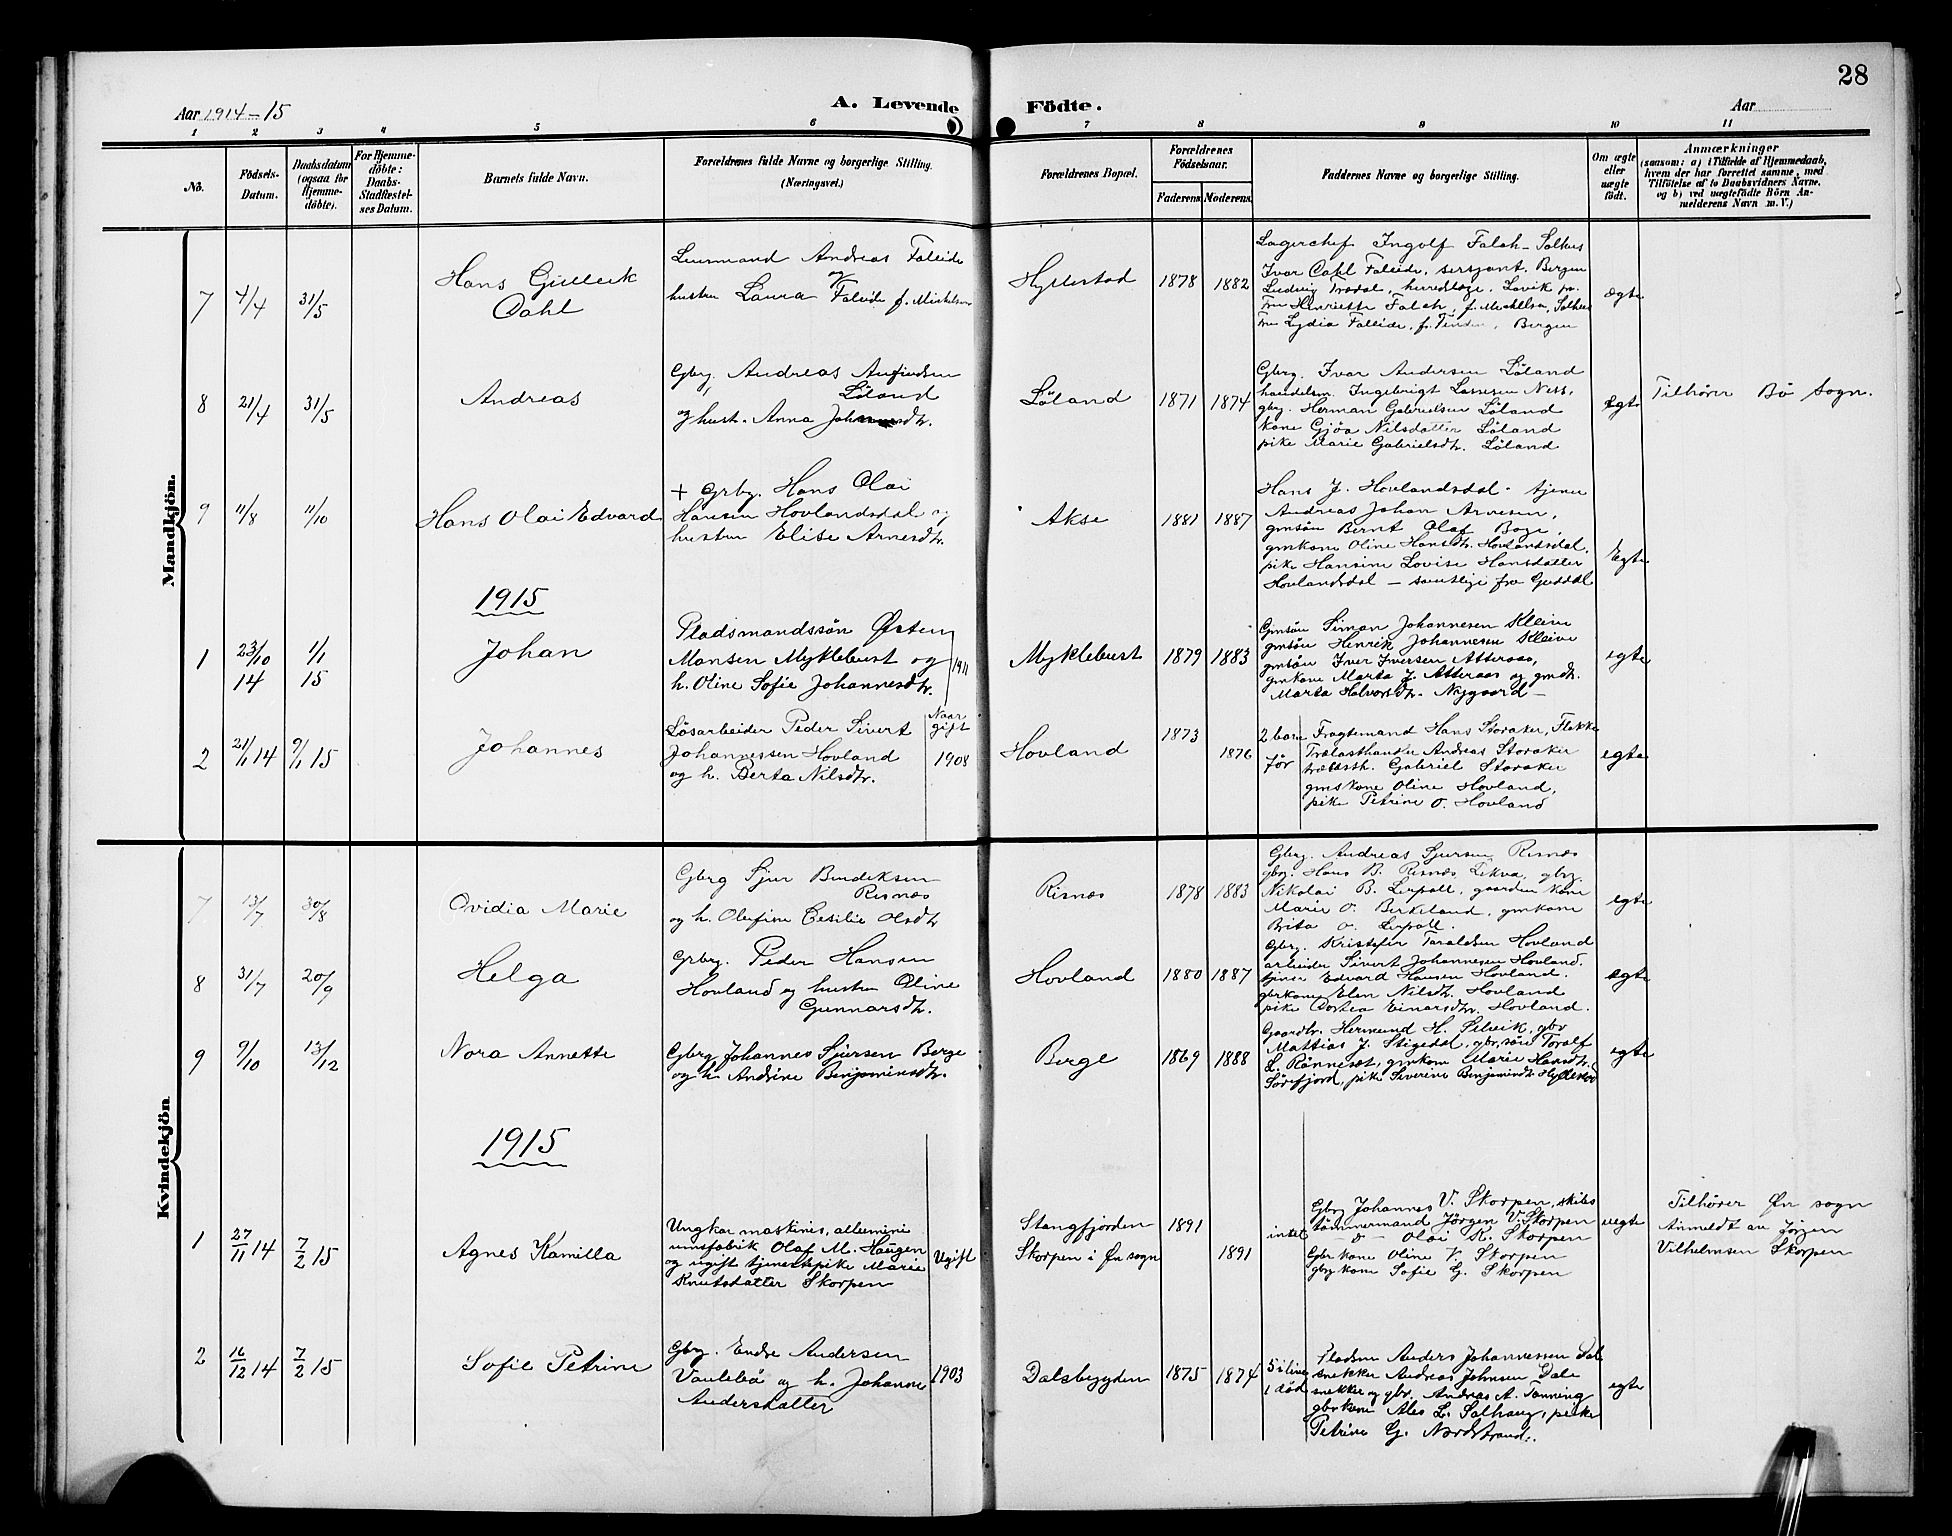 28
Aar 1914-15
A. Levende
Födte.
Aar
1 2 3 4 5 6 7 8 9 10 11
No.
Födsels-
Datum.
Daabsdatum
(ogsaa for
Hjemme-
döbte).
For Hjemme-
döbte:
Daabs-
Stadfæstel-
ses Datum.
Barnets fulde Navn.
Forældrenes fulde Navne og borgerlige Stilling.
(Næringsvei.)
Forældrenes Bopæl.
Forældrenes
Födselsaar.
Faderens.
Moderens.
Faddernes Navne og borgerlige Stilling.
Om ægte
eller
uægte
født.
Anmærkninger
(saasom: a) i Tilfælde af Hjemmedaab,
hvem der har forrettet samme, med
Tilföielse af to Daabsvidners Navne,
og b) ved uægtefödte Börn An-
melderens Navn m. V.)
Mandkjön.
7
4/4
31/5
Hans Gulleik
Dahl
Lensmand Andreas Faleide
og
hustru Laura Faleide f. Mickelsen
Hyllestad
1878
1882
Lagerchef Ingolf Falch - Solhus
Ivar Dahl Faleide, sersjant, Bergen
Ludvig Trædal, herredløge, Lavik
Fru Henriette Falch, f. Michelsen, Solhus
Fru Lydia Faleide, Bergen
ægte
8
21/4
31/5
Andreas
Gbrg. Andreas Anfindsen
Løland
og hust. Anna
Løland
1871
1874
Gbrg. Ivar Andersen Løland
handelsm. Ingebrigt Lassesen Ness,
gbrg. Herman Gabrielsen Løland
kone Gjøa Nilsdatter Løland
pike Marie Gabrielsdtr. Løland
egte
Tilhører Bø Sogn.
9
11/8
11/10
Hans Olai Edvard
+ Grbg. Hans Olai
Hansen Hovlandsdal og
hustru Elise Arnesdtr.
Akse
1881
1887
Hans J. Hovlandsdal - tjener
Andreas Johan Arnesen,
gmsøn Bernt Olaf Boge,
gmkone Oline Hansdtr. Hovlandsdal,
pike Hansine Lovise Hansdatter
Hovlandsdal - samtlige fra Guddal
Egte
1915
1
23/10
14
1/1
15
Johan
Pladsmandssøn Østen
Monsen Myklebust og
h. Oline Sofie Johannesdtr.
1911
Myklebust
1879
1883
Gmsøn Simon Johannesen Kleiva
gmsøn Henrik Johannesen Kleive
gmsøn Iver Iversen Atteraas,
gmkone Marta J. Atteraas og gmdt.
Marta Halvorsdtr. Nygaard -
egte
2
21/11 14
9/1 15
Johannes
Løsarbeider Peder Sivert
Johannessen Hovland
og h. Berta Nilsdtr.
Naar
gift
1908
Hovland
1873
1876
2 barn
før
Fragtemand Hans Storaker, Flekke
Trælasthanker Andreas Storaker
trælasth. Gabriel Storaker
gmskone Oline Hovland,
pike Petrine O. Hovland
egte
Kvindekjön.
7
13/7
30/8
Ovidia Marie
Gbrg Sjur Bendiksen
Risnæs
og h. Olufine Cesilie Olsdtr
Risnæs
1878
1883
Gbrg. Andreas Sjursen Risnæs
gbrg. Hans B. Risnæs Tekva, gbrg.
Nikolai B. Leipoll, gaardm kone
Marie O. Birkeland, gmkone
Brita O. Leipoll.
egte
8
31/7
20/9
Helga
Grbrg. Peder Hansen
Hovland og hustru Oline
Gunnarsdtr.
Hovland
1880
1887
Gbrg. Kristofer Taraldsen Hovland
arbeider Sivert Johannesen Hovland.
tjener Edvard Hansen Hovland.
gbrkone Elen Nilsdtr. Hovland
pike Dortea Einarsdtr. Hovland.
egte
9
9/10
13/12
Nora Annette
Gbrg Johannes Sjursen Berge
og h. Andrine Benjaminsdtr.
Berge
1869
1888
Gaardbr. Hermund H. Selvik, gbr
Mattias J. Stigedal, gbr. søn Toralf
L. Rönneset, gmkone Marie Hansdtr.
Sørefjord, pike Severine Benjamindt. Hyllestad
egte
1915
1
27/11 14
7/2 15
Agnes Kamilla
Ungkar maskinis, allumini-
umsfabrik Olaf M. Haugen
og ugift tjenestepike Marie
Knutsdatter Skorpen
Ugift
Stangfjorden
Skorpen i Øn sogn
1891
1891
intet
Gbrg Johannes V. Skorpen, skibs
tømmermand Jörgen V. Skorpen
-"- Olai K. Skorpen
Gbr kone Oline K Skorpen
gbrg kone Sofie G. Skorpen
uegte
Tilhører Øn sogn
Anmeldt av Jörgen
Vilhelmsen Skorpen
2
16/12 14
7/2 15
Sofie Petrine
Gbrg. Endre Andersen
Vaulebø og h. Johanne
Andersdatter
1903
Dalsbygden
1875
1874
5 i live
1 død
Pladsm Anders Johannessen Dale
snekker Andreas Johnsen Dale
snekker og gbr. Andreas A. Tonning
gbrkone Ales L. Solhaug, pike
Petrine G. Nordstrand.
egte